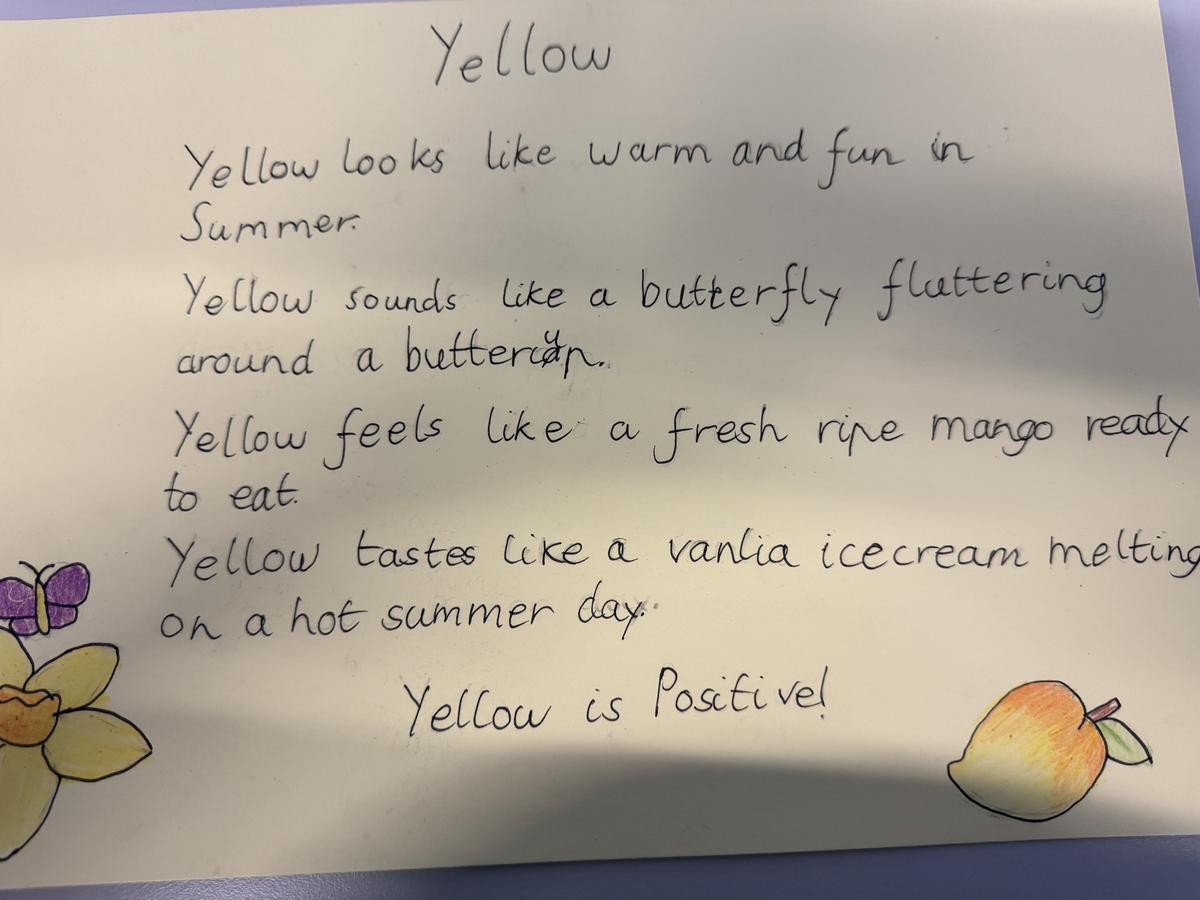 Yellow
Yellow looks like warm and fun in
Summer.
Yellow sounds like a butterfly fluttering
around a buttercup.
Yellow feels like a fresh ripe mango ready
to eat.
Yellow tastes like a vanlia icecream melting
on a hot summer day.
Yellow is Positive!